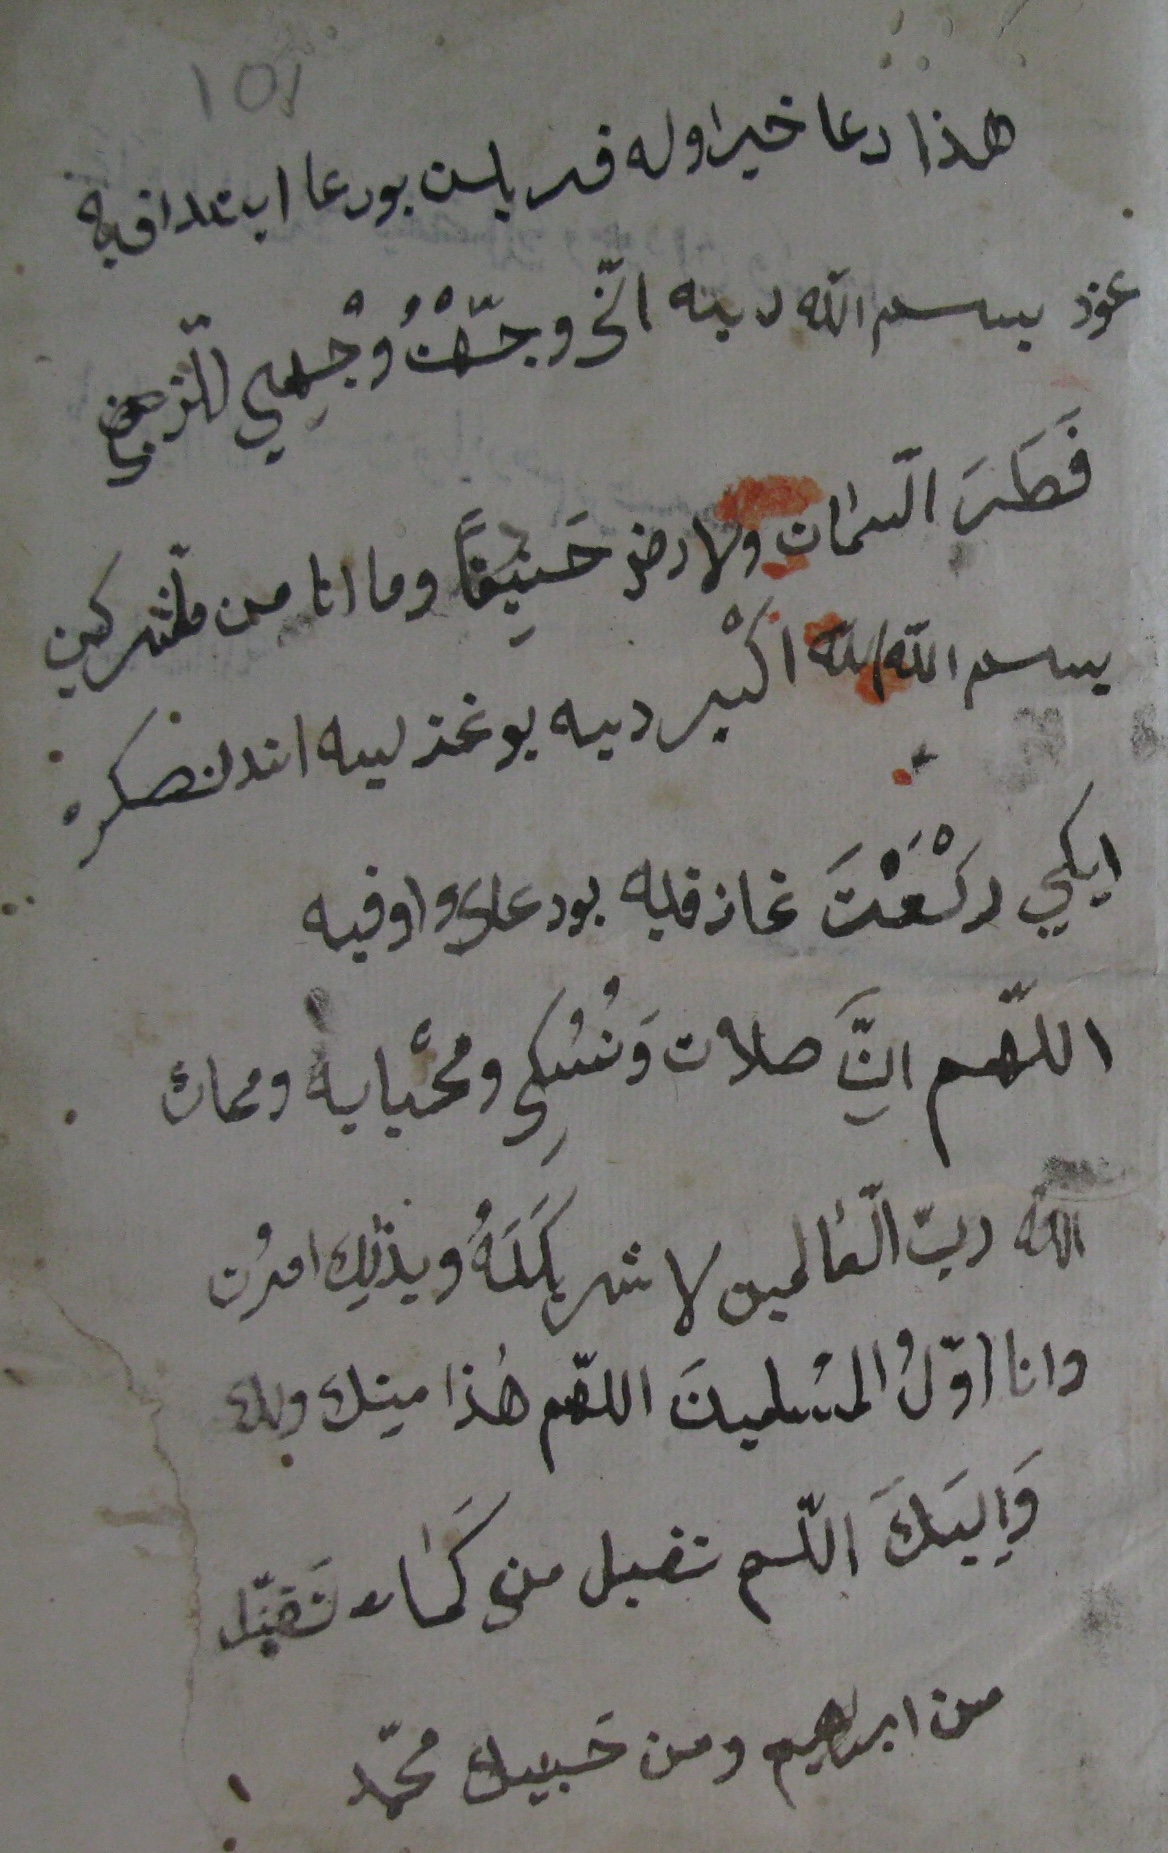 ١٥١
هذا دعا خيراوله قربان بودعا ابتدا قبله
عوذ بسم الله دينه انّى وجّهْتُ وْجْهِي للّزى
فَطَرَ السّمات ولارض حَنِيفًا وما انا من ملّشركين
بسم الله الله اكْبر ديه بوغذليه اندنصكره
ايكي ركْعَتَ نماز قله بودعاى اوقيه
اللّهم انَّ صلات وَنُسُكِي ومحْيايه وممات
الله ربّ الّعالمين لا شريكَلَهُ وبذلِك امرُن
وانا اوّلُ المسْلمينَ اللهّم هذا مينك ولك
وَاِليَكَ اللّهم تقبل من كَما تَقبّل
من ابراهيم ومن حَبيبك محمّد